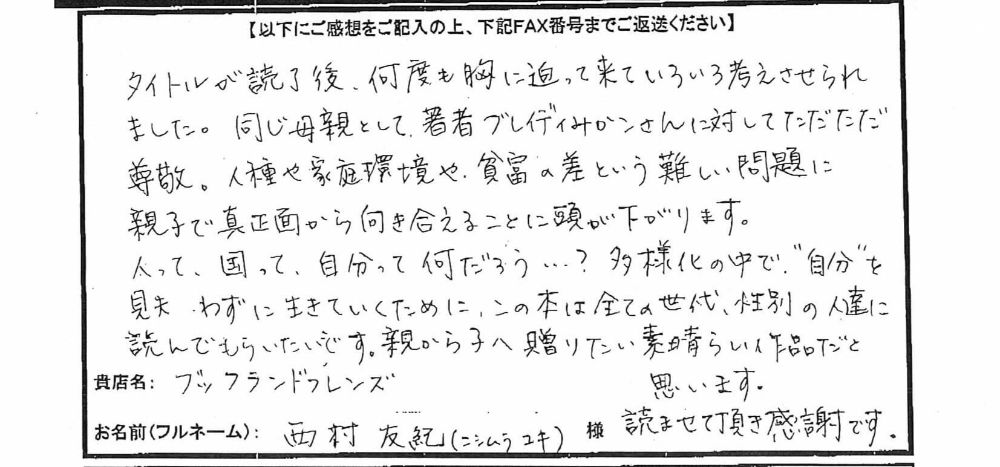 【以下にご感想をご記入の上、下記FAX番号までご返送ください】
タイトルが読了後、何度も胸に迫って来ていろいろ考えさせられ
ました。同じ母親として、著者ブレイディみかこさんに対してただただ
尊敬。人種や家庭環境や、貧富の差という難しい問題に
親子で真正面から向き合えることに頭が下がります。
人って、国って、自分って何だろう…?多様化の中で、"自分"を
見失わずに生きていくために、この本は全ての世代、性別の人達に
読んでもらいたいです。親から子へ贈りたい素晴らしい作品だと
思います。
読ませて頂き感謝です。
貴店名: ブックランドフレンズ
お名前(フルネーム): 西村 友紀(ニシムラ ユキ) 様